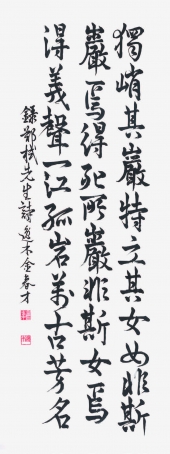 獨峭其巖特立其女女非斯
巖焉得死所巖非斯女焉
得義聲一江孤岩萬古芳名
錄鄭栻先生詩逸木金春才